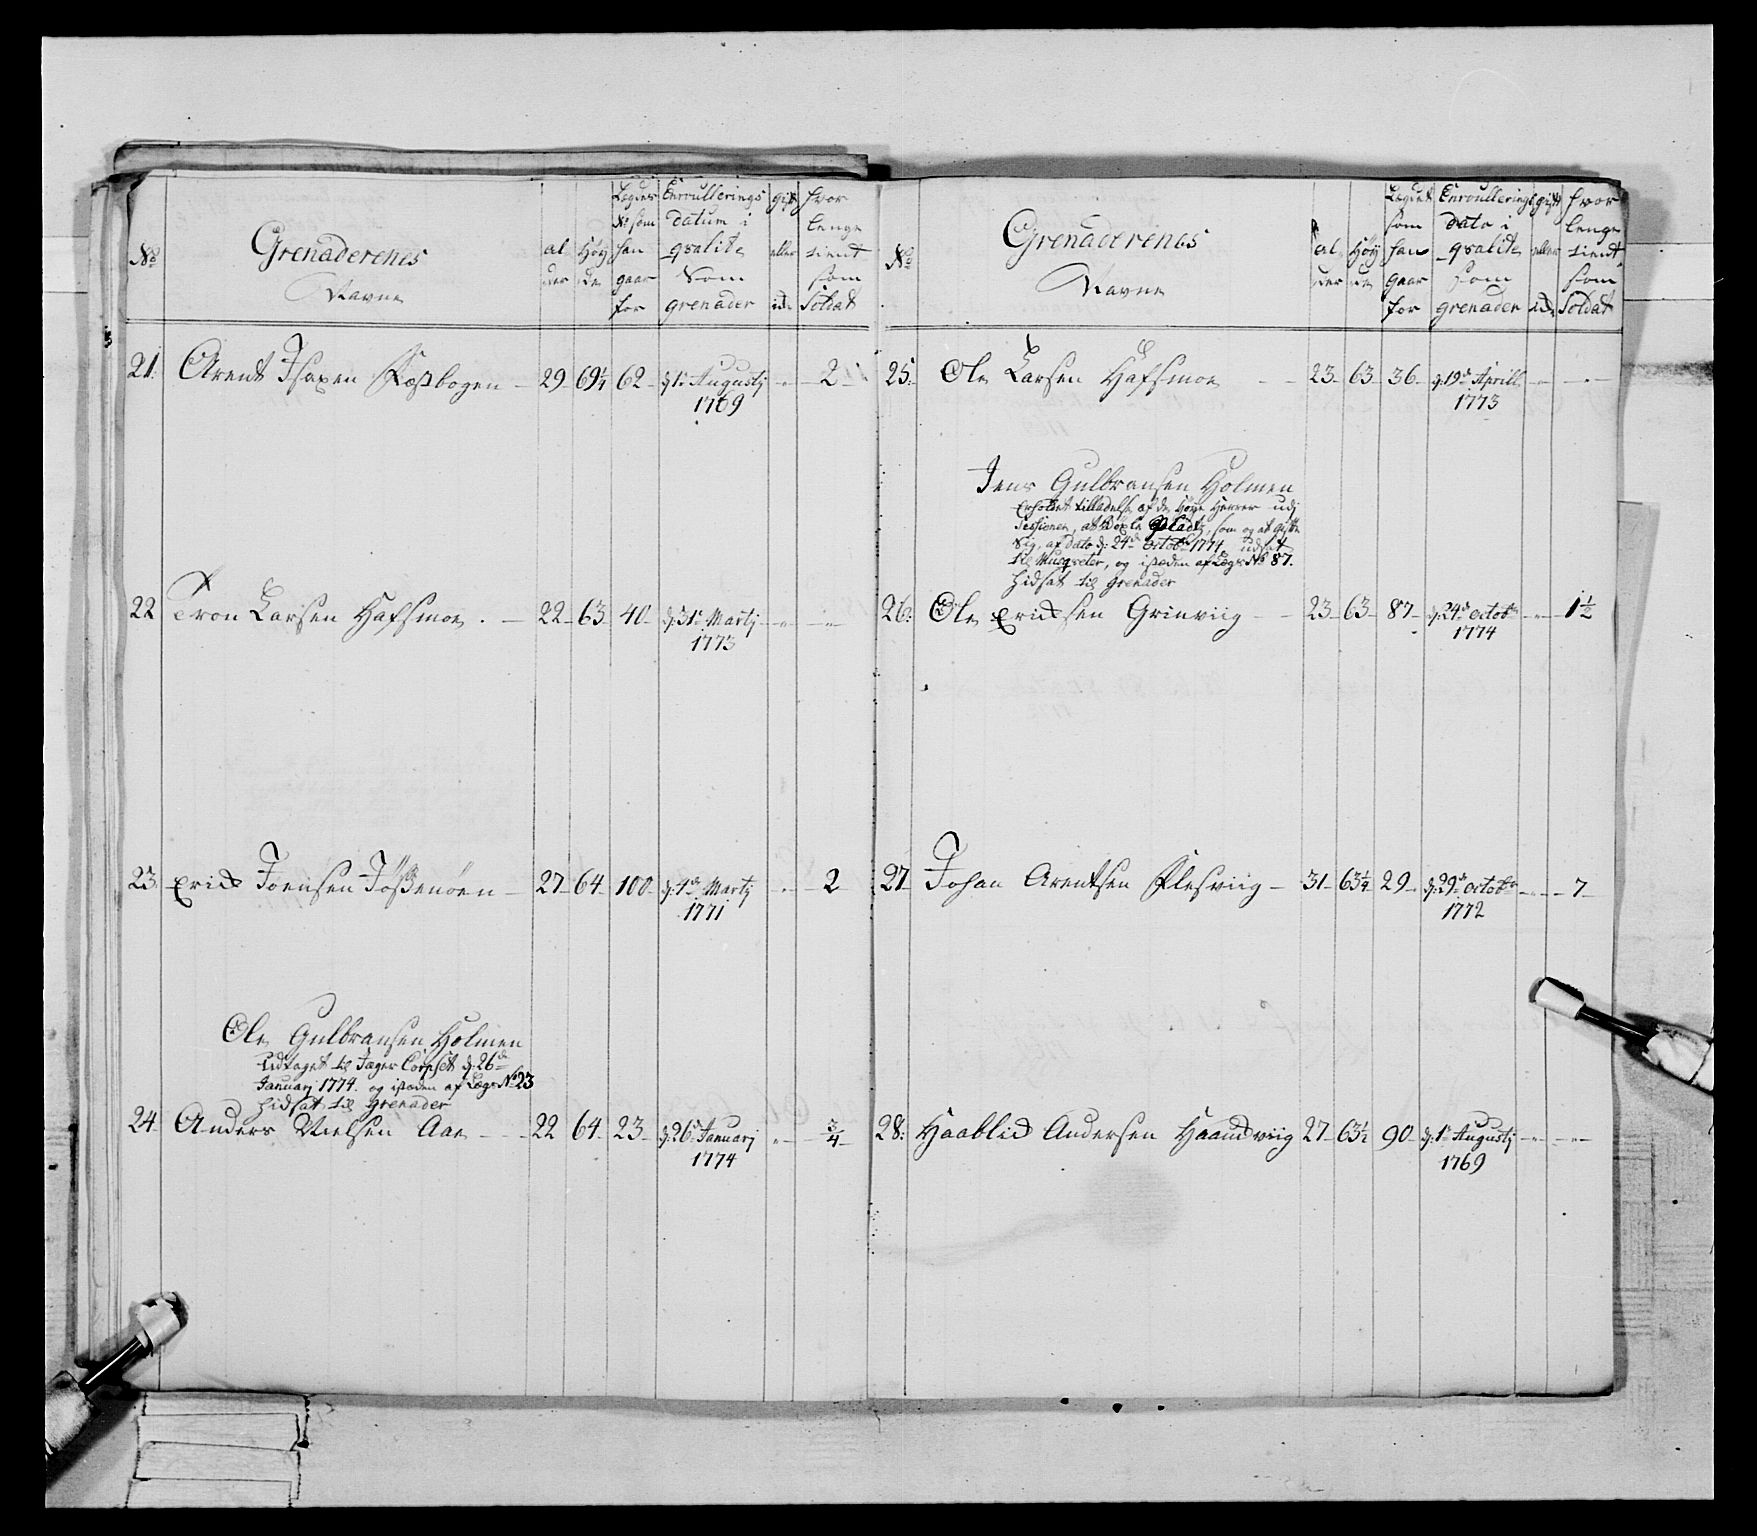 No
Grenaderenes
Navne
al
der
Høy
de
Lægdes
No som
han
gaar
for
Enroullerings
datum i
qvalite
Som
grenader
gift
eller
ei
hvor
lenge
tient
som
Soldat
21. Arent Isaxen 29 69¼ 62 d: 1te Augustj 2
1769
22 Tron Larsen Hafsmoe 22 63 40 d: 31te Martj
1773
23. Erich Joensen 27 64 100 d: 1te Martj 2
1771
Ole Gulbransen Holmen
Udtaget til Jæger Corpset d: 26de
Januarj 1774. og istæden af Lægs No 23
hidsat til Grenader
24. Anders Nielsen Aae 22 64 23 d: 26de Januarj ¾
1774
No
Grenaderenes
Navne
al
der
Høy
de
Lægdet
som
han
gaar
for
Enroullerings
dato i
qvalite
som
grenader
gift
eller
ei
hvor
lenge
tient
som
Soldat
25. Ole Larsen Hafsmoe 23 63 36 d: 19de Aprill
1773
Jens Gulbransen Holmen
Erholdet tilladelse af de Høye Herrer udj
Sessionen, at Pladtz, som og at gifte
Sig, af dato d: 24de Octobr 1774 udsat
til Musqveter, og istæden af Lægs No 87.
hidsat til Grenader
26. Ole Erichsen Grinviig 23 63 87 d: 24de Octobr 1½
1774
27 Johan Arentsen Flesviig 31 63¼ 29 d: 29de Octobr 7
1772
28. Haablid Andersen Haandviig 27 63½ 90 d: 1te Augustj
1769